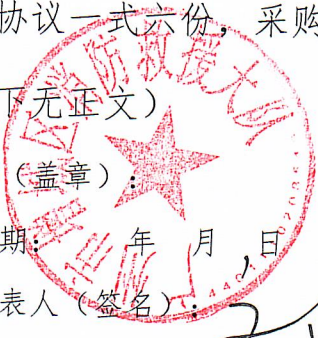 协议一式六份，采购
下无正文）
（盖章）：
期： 年 月 日
表人（签名）：
区消防救援大队